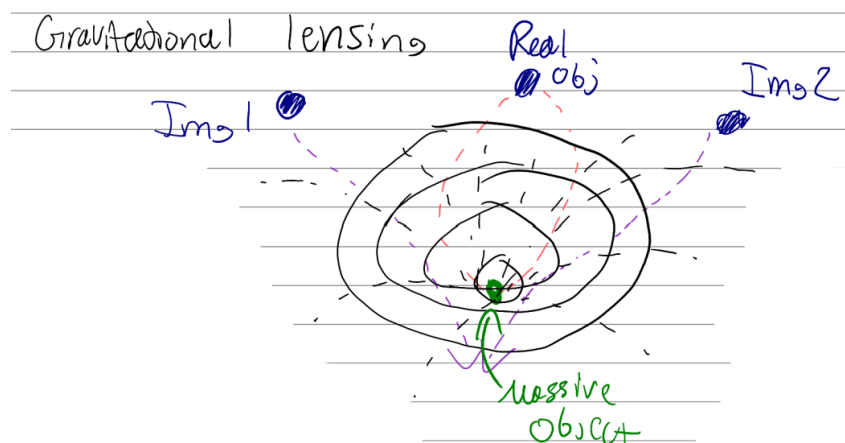 Gravitational lensing
Real
Obj
Img 1
Img 2
Massive
Object